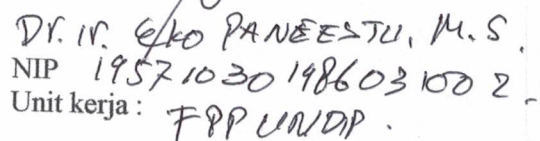 Dr. ir. Eko PANEESTU, M.S.
NIP 19571030 198603 1002
Unit kerja : FPP UNDIP.